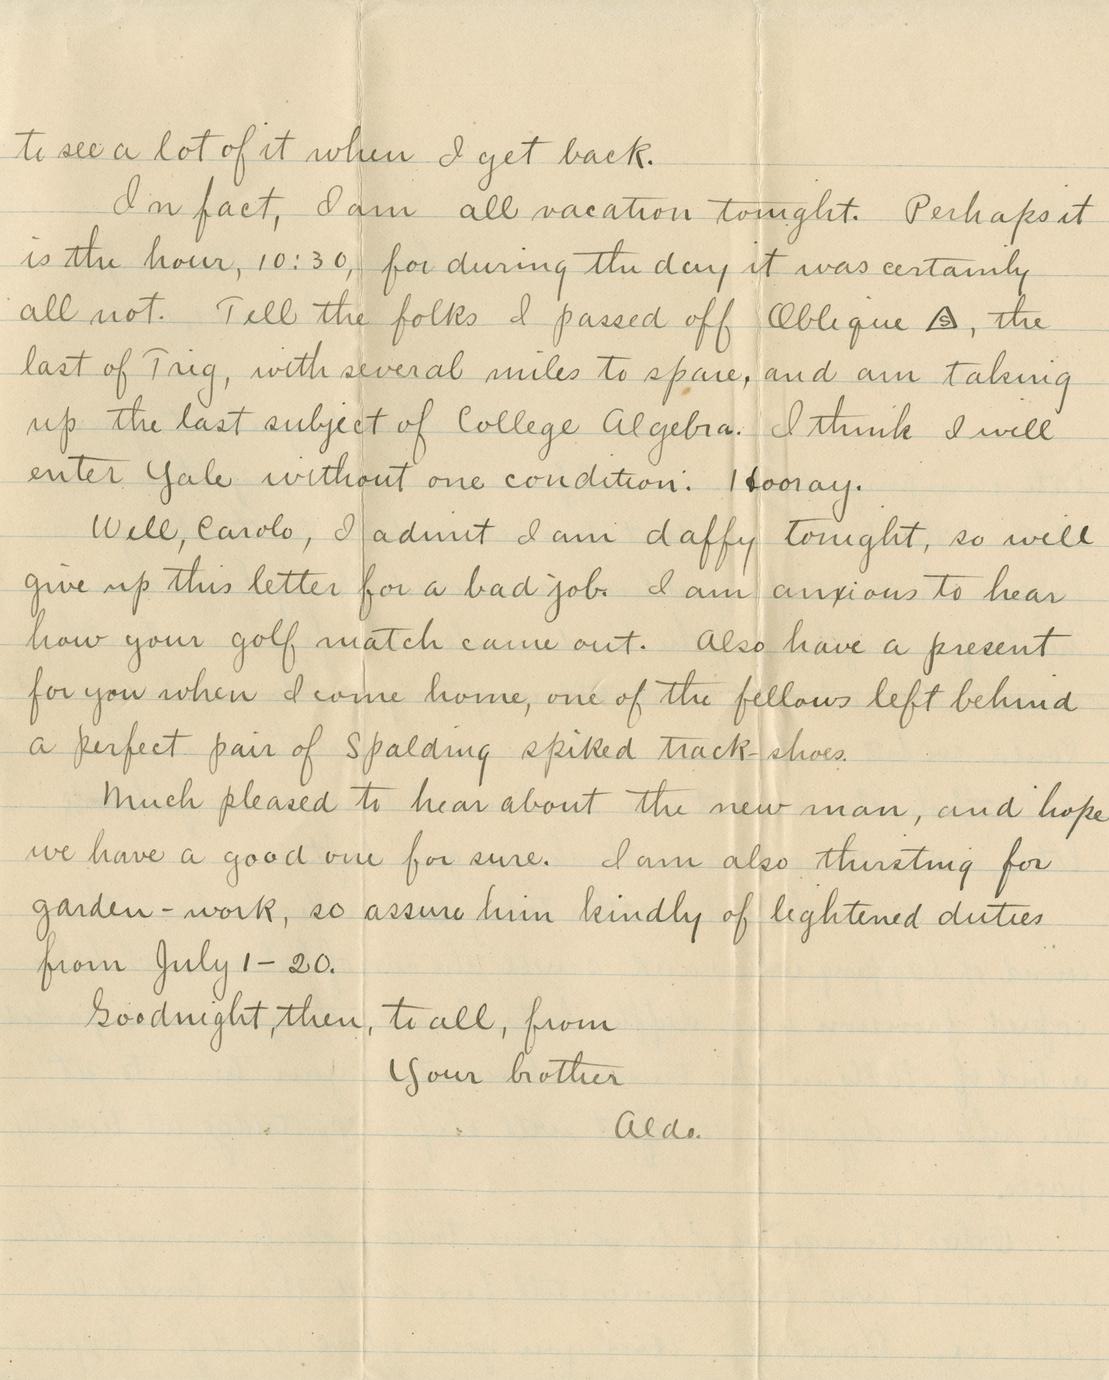 to see a lot of it when I get back.
In fact, I am all vacation tonight. Perhaps it
is the hour, 10:30, for during the day it was certainly
all not. Tell the folks I passed off Oblique △s, the
last of Trig, with several miles to spare, and am taking
up the last subject of College Algebra. I think I will
enter Yale without one condition. Hooray.
Well, Carolo, I admit I am daffy tonight, so will
give up this letter for a bad job. I am anxious to hear
how your golf match came out. Also have a present
for you when I come home, one of the fellows left behind
a perfect pair of Spalding spiked track-shoes.
Much pleased to hear about the new man, and hope
we have a good one for sure. I am also thirsting for
garden-work, so assure him kindly of lightened duties
from July 1-20.
Goodnight, then, to all, from
Your brother
Aldo.